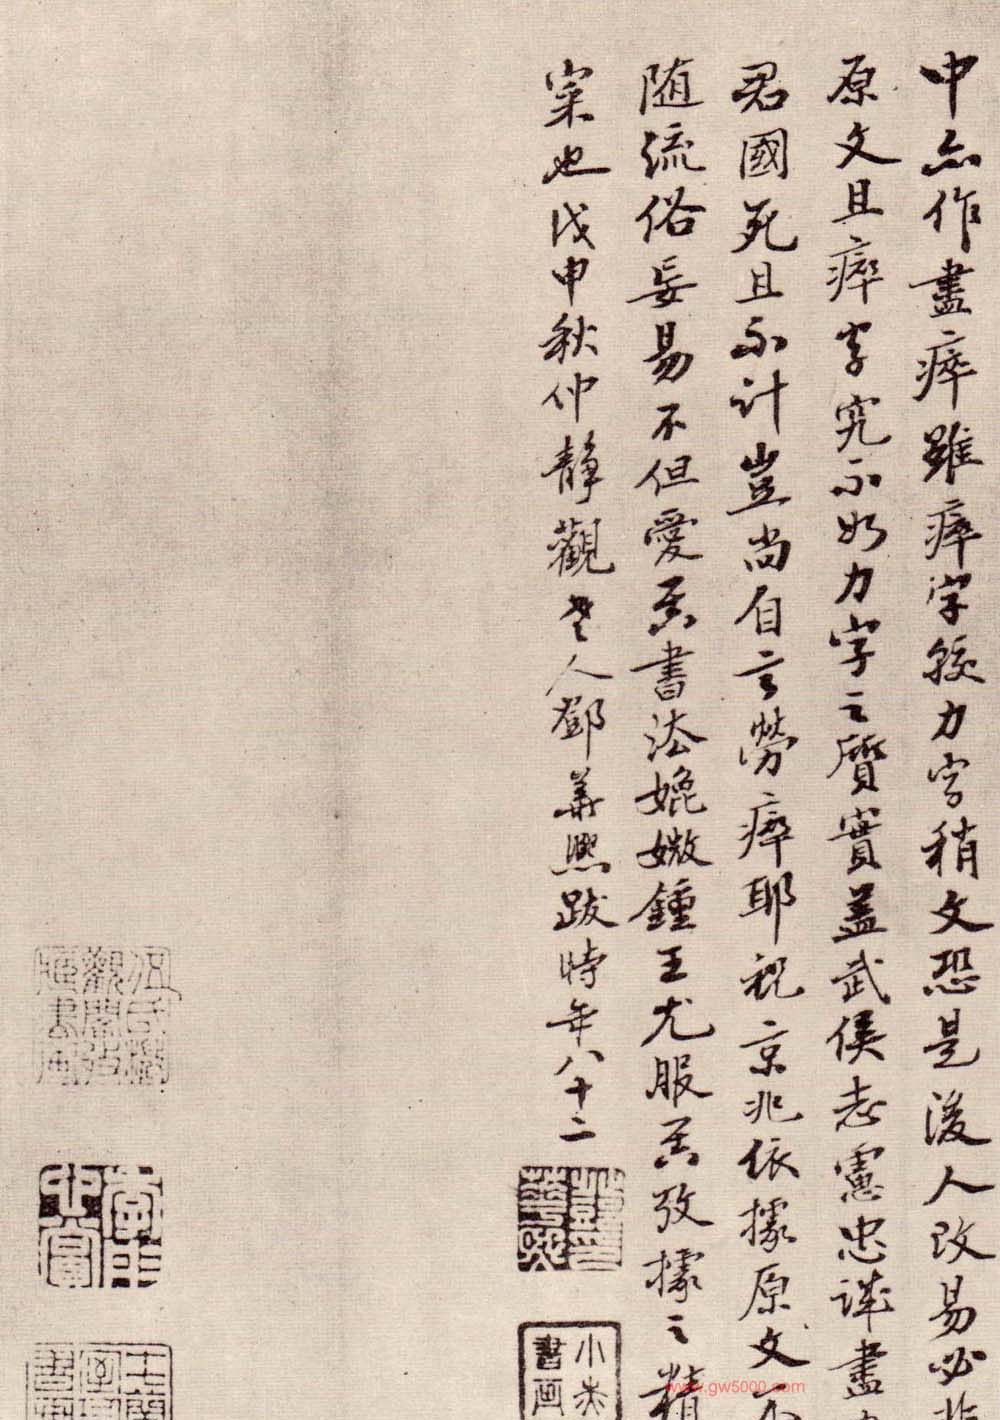 中亦作盡瘁雖瘁字較力字稍文恐是後人改易必非
原文且瘁字究不如力字之質實蓋武侯志慮忠誠盡
君國死且不計豈尚自言勞瘁耶祝京兆依據原文不
随流俗妄易不但愛其書法媲媺鍾王尤服其攷據之精
寀也戊申秋仲靜觀老人鄧華熙跋時年八十二
鄧華熙印
小赤
書画
伍氏
觀
書画
www.gw5000.com